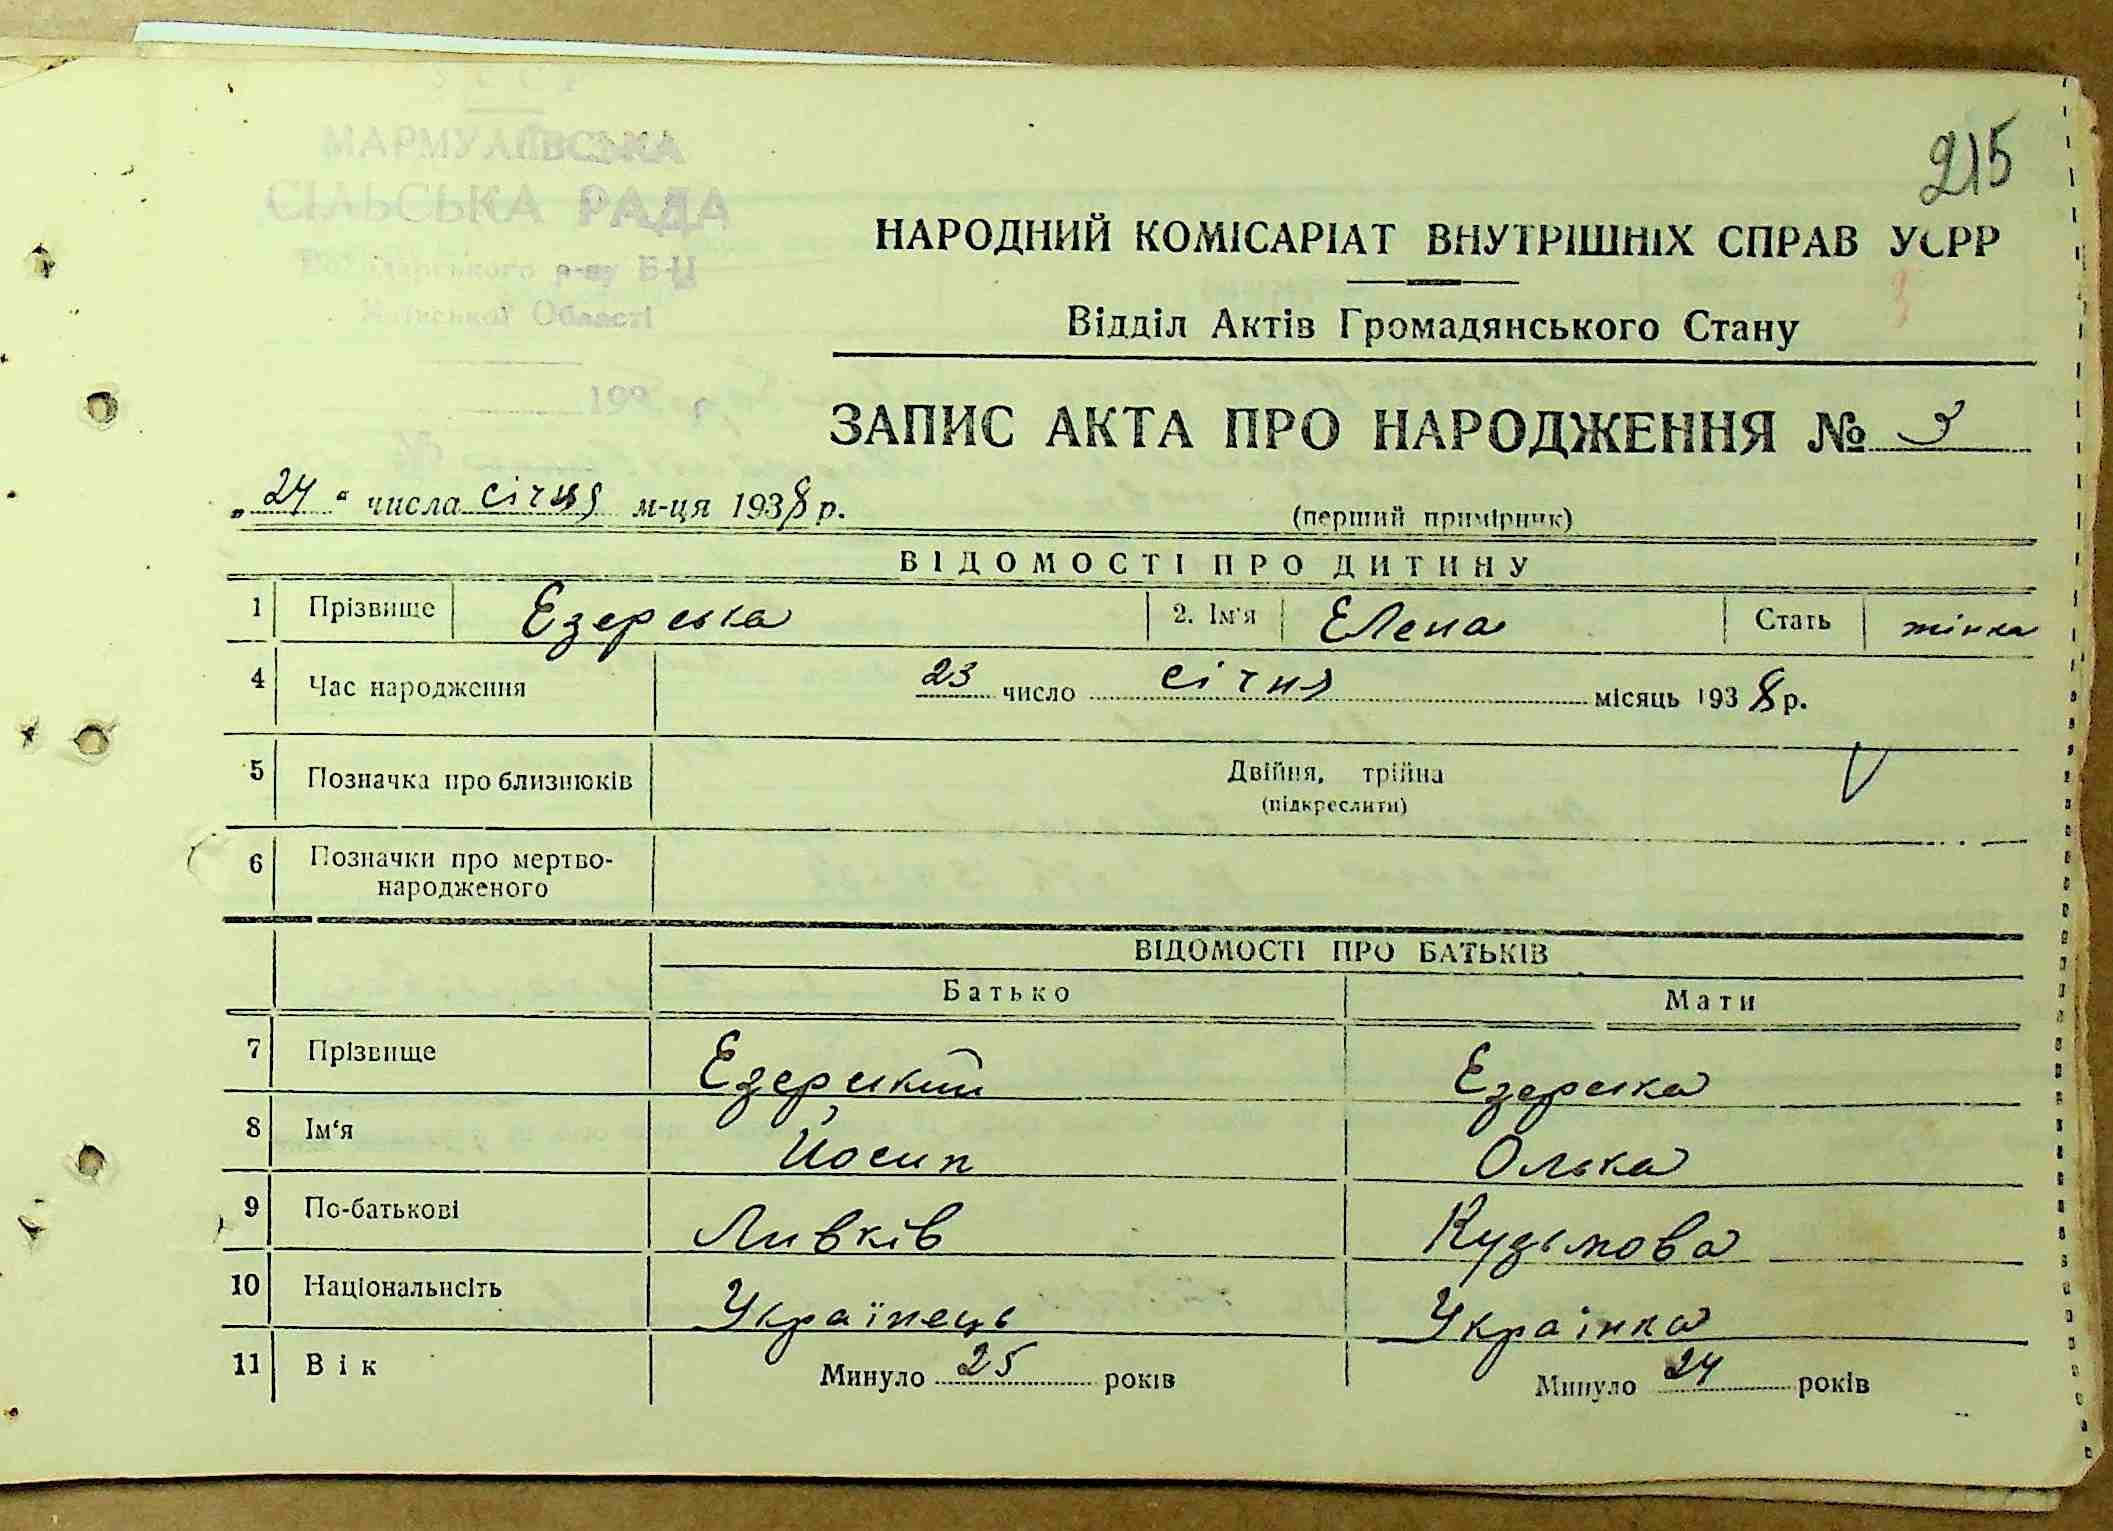 215
МАРМУЛІЇВСЬКА
СІЛЬСЬКА РАДА
р-ну Б-Ц
Київської Області
193
НАРОДНИЙ КОМІСАРІАТ ВНУТРІШНІХ СПРАВ УСРР
3
Відділ Актів Громадянського Стану
ЗАПИС АКТА ПРО НАРОДЖЕННЯ № 3
„24“ числа січня м-ця 1938 р.
(перший примірник)
ВІДОМОСТІ ПРО ДИТИНУ
1 Прізвище Езерська 2. Ім'я Елена Стать жінка
4 Час народження 23 число січня місяць 1938 р.
5 Позначка про близнюків Двійня, трійна
(підкреслити)
6 Позначки про мертво-
народженого
ВІДОМОСТІ ПРО БАТЬКІВ
Батько Мати
7 Прізвище Езерський Езерська
8 Ім'я Йосип Олька
9 По-батькові Ливків Кузьмова
10 Національнсіть Українець Українка
11 Вік Минуло 25 років Минуло 24 років